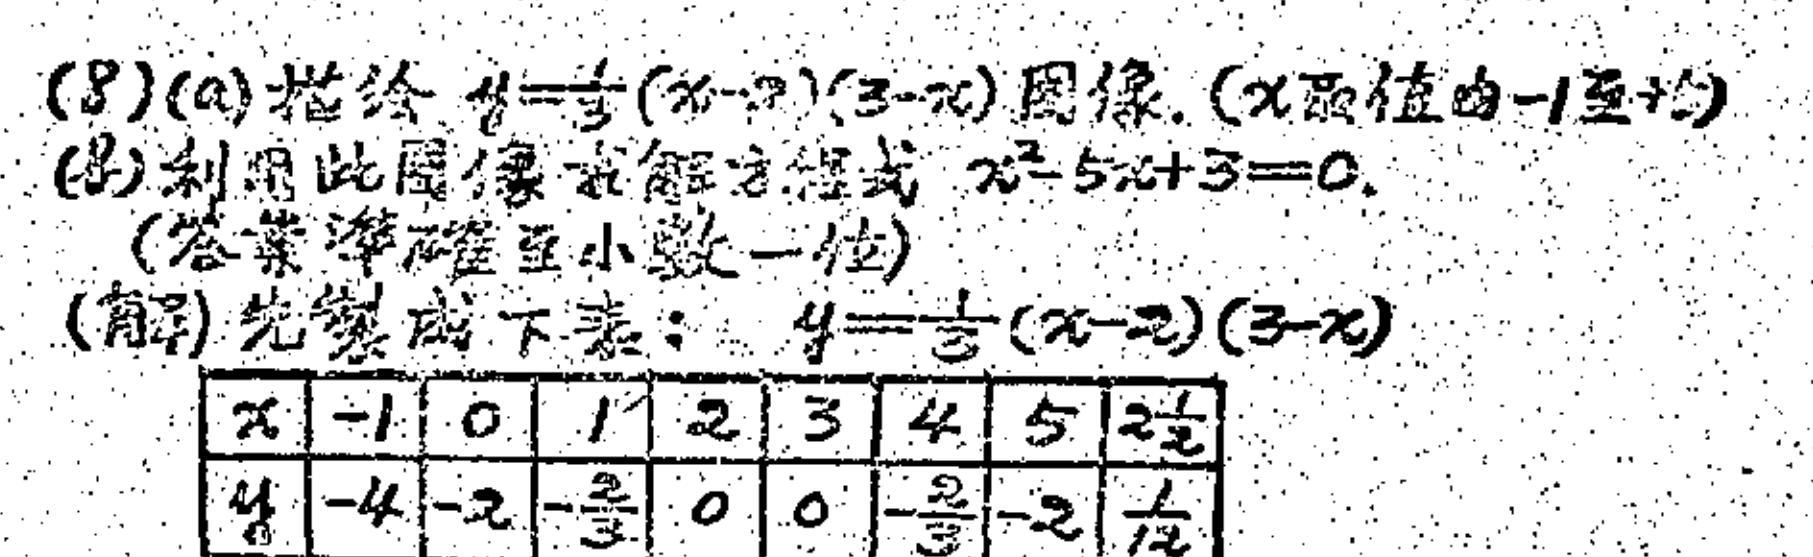 (8)(a) 描繪 y=1/3(x-2)(3-x) 圖像. (x取值由-1至+5)
(b) 利用此圖像求解方程式 x²-5x+3=0.
(答案準確至小數一位)
(解) 先製成下表: y=1/3(x-2)(3-x)
x -1 0 1 2 3 4 5 2 1/2
y -4 -2 -2/3 0 0 -2/3 -2 1/12